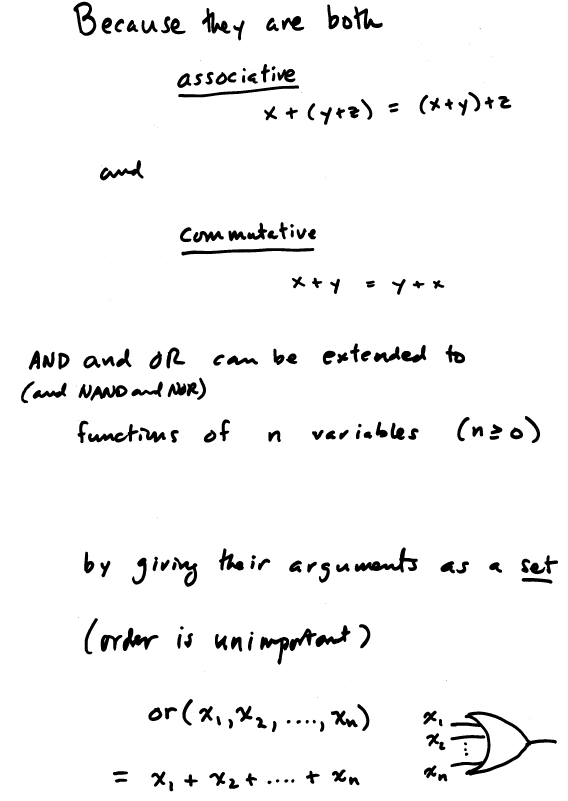 Because they are both
associative
x + (y+z) = (x+y)+z
and
commutative
x + y = y + x
AND and OR can be extended to
(and NAND and NOR)
functions of n variables (n ≥ 0)
by giving their arguments as a set
(order is unimportant)
or(x₁, x₂, ...., xₙ)
= x₁ + x₂ + .... + xₙ
x₁
x₂
⋮
xₙ